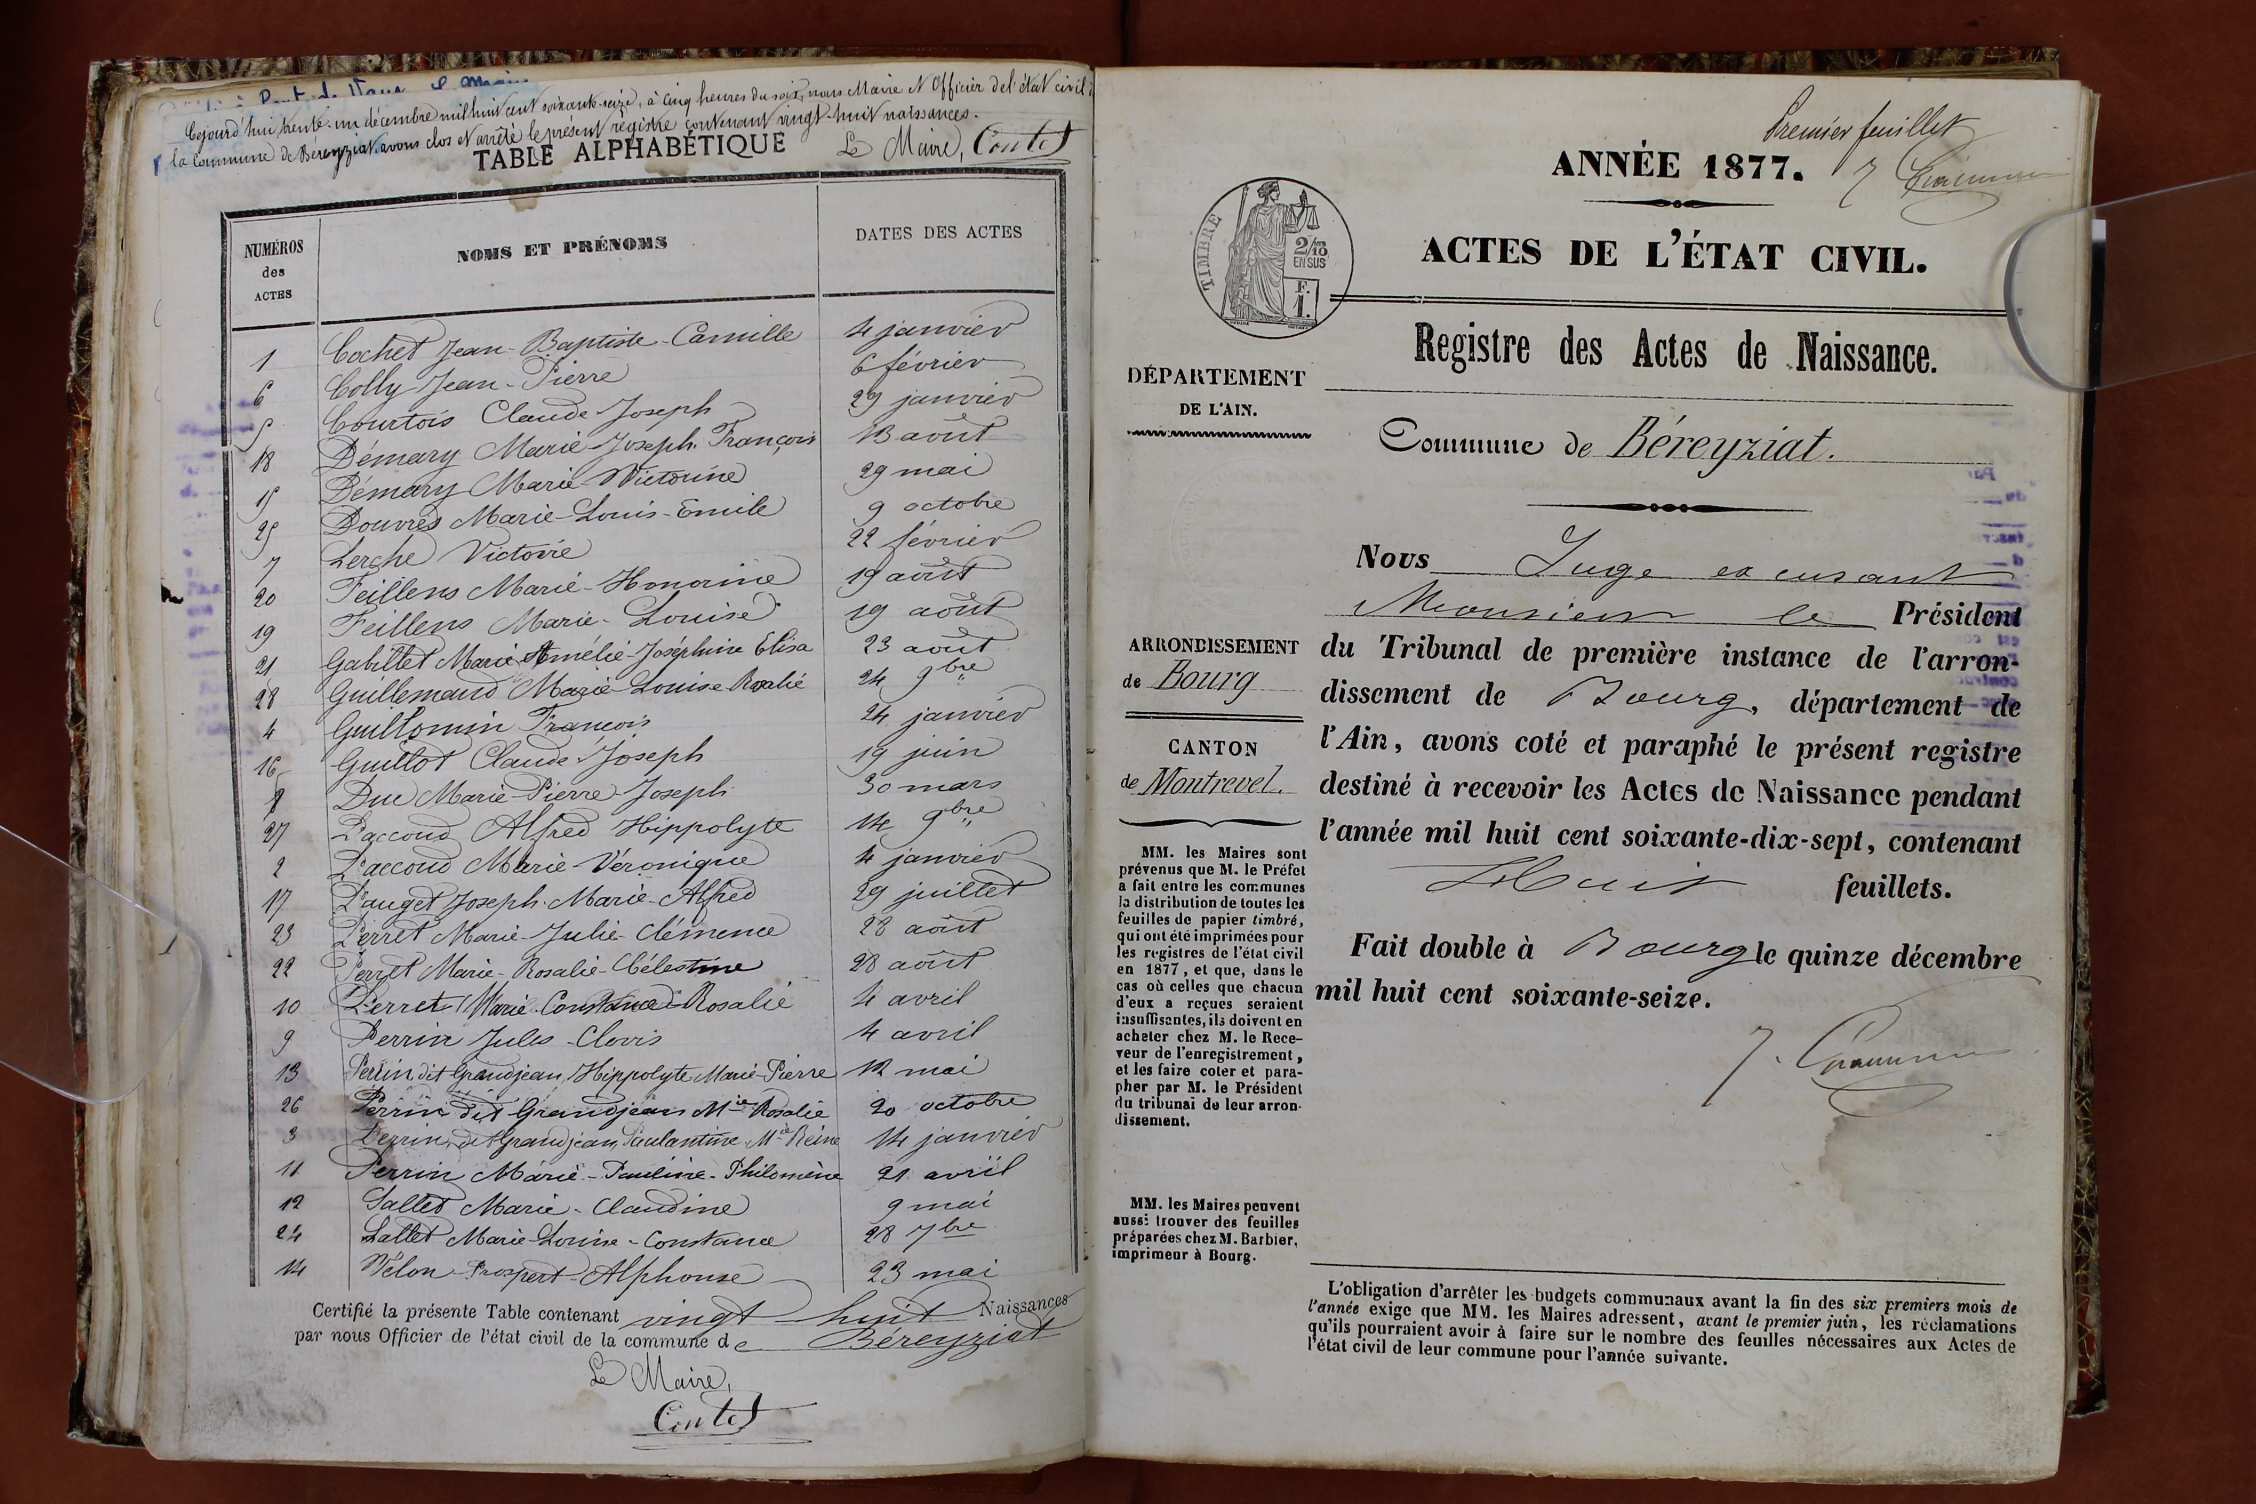 Cejourd'hui trente-un décembre mil huit cent soixante-seize, à cinq heures du soir, nous Maire et Officier de l'état civil de
la Commune de Béreyziat avons clos et arrêté le présent registre contenant vingt-huit naissances.
Le Maire, Contet
TABLE ALPHABÉTIQUE
NUMÉROS des ACTES NOMS ET PRÉNOMS DATES DES ACTES
1 Cochet Jean-Baptiste-Camille 4 janvier
6 Colly Jean-Pierre 6 février
5 Courtois Claude-Joseph 29 janvier
18 Démary Marie-Joseph-François 13 août
15 Démary Marie-Victorine 29 mai
25 Douvres Marie-Louis-Emile 9 octobre
7 Lerche Victorie 22 février
20 Feillens Marie-Honorine 19 août
19 Feillens Marie-Louise 19 août
21 Gabillet Marie Amélie-Joséphine Elisa 23 août
28 Guillemaud Marie-Louise Rosalie 24 9bre
4 Guillomin François 24 janvier
16 Guillot Claude-Joseph 19 juin
8 Duc Marie-Pierre Joseph 30 mars
27 Paccoud Alfred Hippolyte 14 9bre
2 Paccoud Marie-Véronique 4 janvier
17 Pauget Joseph-Marie-Alfred 29 juillet
23 Perret Marie-Julie-Clémence 28 août
22 Perret Marie-Rosalie-Célestine 28 août
10 Perret Marie-Constance-Rosalie 4 avril
9 Perrin Jules-Clovis 4 avril
13 Perrin dit Grandjean Hippolyte Marie-Pierre 12 mai
26 Perrin dit Grandjean Mie Rosalie 20 octobre
3 Perrin dit Grandjean Mie Reine 14 janvier
11 Perrin Marie-Pauline-Philomène 21 avril
12 Sallet Marie-Claudine 9 mai
24 Sallet Marie-Louise-Constance 28 7bre
14 Vélon Prospert-Alphonse 23 mai
Certifié la présente Table contenant vingt huit Naissances
par nous Officier de l'état civil de la commune de Béreyziat
Le Maire,
Contet
Premier feuillet
ANNÉE 1877.
TIMBRE
2/10
EN SUS
F.
1.
ACTES DE L'ÉTAT CIVIL.
Registre des Actes de Naissance.
DÉPARTEMENT
DE L'AIN.
Commune de Béreyziat.
ARRONDISSEMENT
de Bourg
CANTON
de Montrevel.
MM. les Maires sont
prévenus que M. le Préfet
a fait entre les communes
la distribution de toutes les
feuilles de papier timbré,
qui ont été imprimées pour
les registres de l'état civil
en 1877, et que, dans le
cas où celles que chacun
d'eux a reçues seraient
insuffisantes, ils doivent en
acheter chez M. le Rece-
veur de l'enregistrement,
et les faire coter et para-
pher par M. le Président
du tribunal de leur arron-
dissement.
MM. les Maires peuvent
aussi trouver des feuilles
préparées chez M. Barbier,
imprimeur à Bourg.
Nous Juge excusant
Monsieur le Président
du Tribunal de première instance de l'arron-
dissement de Bourg, département de
l'Ain, avons coté et paraphé le présent registre
destiné à recevoir les Actes de Naissance pendant
l'année mil huit cent soixante-dix-sept, contenant
Huit feuillets.
Fait double à Bourg le quinze décembre
mil huit cent soixante-seize.
L'obligation d'arrêter les budgets communaux avant la fin des six premiers mois de
l'année exige que MM. les Maires adressent, avant le premier juin, les réclamations
qu'ils pourraient avoir à faire sur le nombre des feuilles nécessaires aux Actes de
l'état civil de leur commune pour l'année suivante.